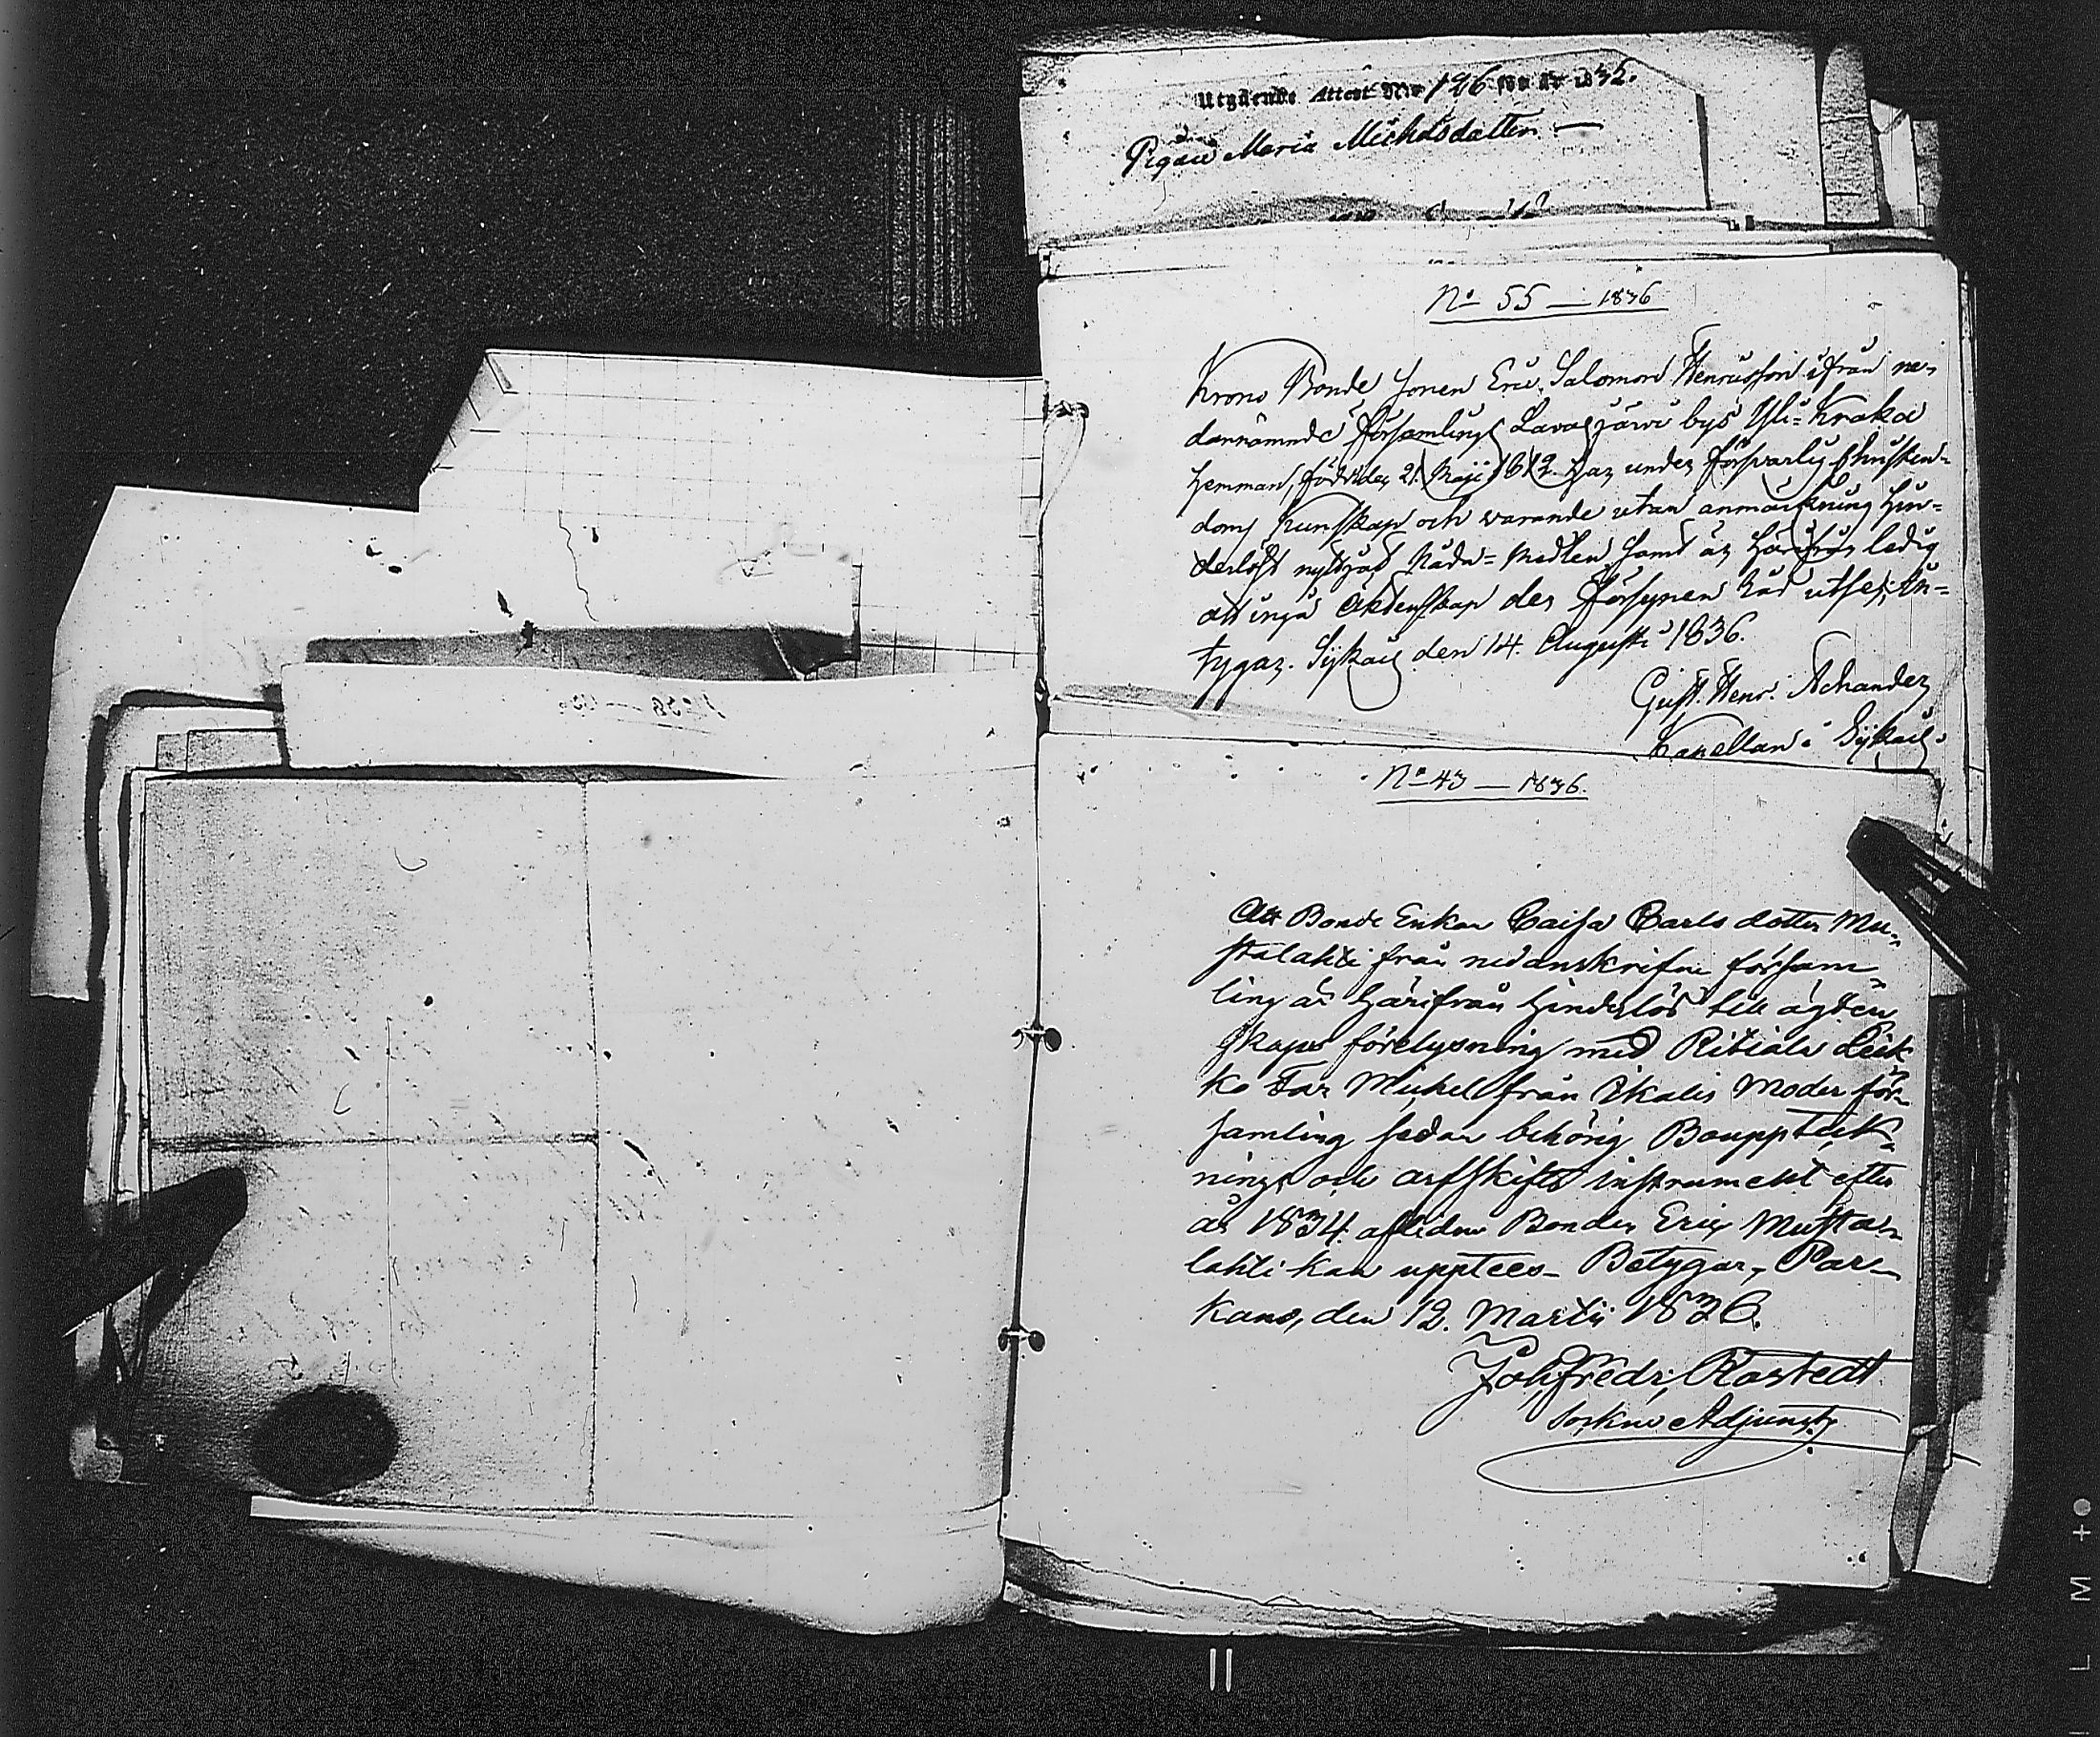 Utgående Attest No 126 för År 1835.
Pigan Maria Michelsdotter —
No 55 — 1836
Krono Bonde Sonen Eric Salomon Henricsson ifrån ne-
dannämnde församlings Lavasjärvi bys Yli-Kraka
hemman, född den 21. Maji 1812. har under försvarlig Christen-
doms kunskap och warande utan anmärkning Hin-
derlöst nyttjat Nåda-Medlen, samt är härifrån ledig
att ingå Äktenskap der Försynen Råd utser; Be-
tygar. Sijkais den 14. Augusti 1836.
Gust. Henr. Achander
Kapellan i Sijkais.
No 43 — 1836.
Att Bonde Enkan Caisa Carls dotter Mu-
stalahti från nedanskrifne försam-
ling är härifrån hinderlös till ägten
skaps förelysning med Ritiala Leik
ko Far Michel från Ikalis Moder för-
samling sedan behörig Bouppteck-
nings och arfskifts instrument efter
år 1834. aflidne Bonden Eric Musta-
lahti kan upptees- Betygar, Par-
kano, den 12. Martii 1836.
Joh. Fredr. Rostedt
Sockne Adjunct.